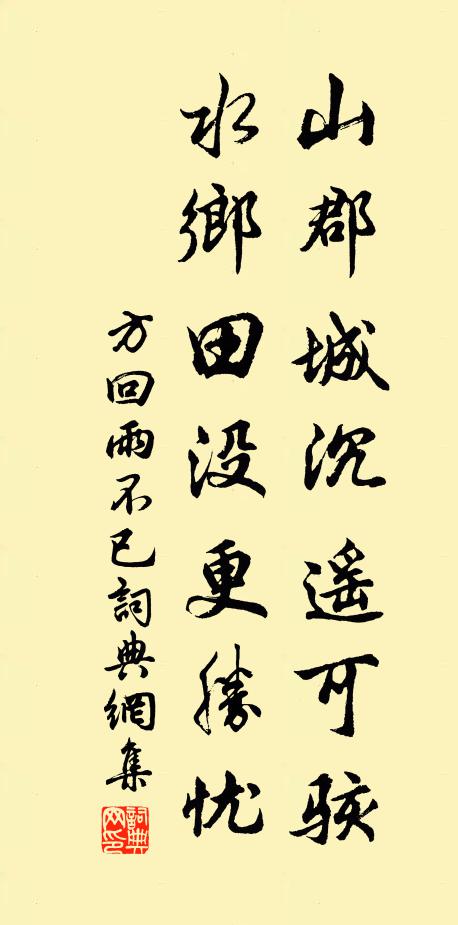 山郡城沉遥可骇
水鄉田没更勝忧
方回雨不已詞典網集
詞典网印